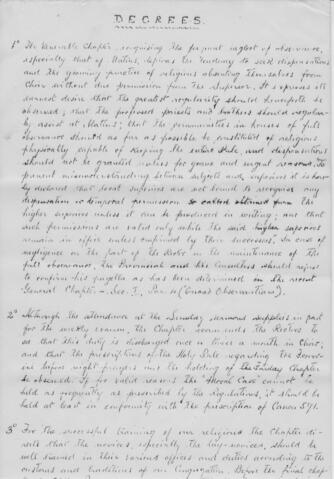 DECREES.
1° The Venerable Chapter, recognising the frequent neglect of observance,
especially that of Matins, deplores the tendency to seek dispensations
and the growing practice of religious absenting themselves from
Choir without due permission from the Superior. It expresses its
earnest desire that the greatest regularity should henceforth be
observed; that the professed priests and brothers should regular-
ly assist at Matins; that the communities in houses of full
observance should as far as possible be constituted of religious
physically capable of keeping the entire Rule and dispensations
should not be granted unless for grave and urgent reasons. To
prevent misunderstanding between subjects and superiors it is here-
by declared that local superiors are not bound to recognise any
dispensation or temporal permission so called obtained from the
higher superiors unless it can be produced in writing; and that
such permissions are valid only while the said higher superiors
remain in office unless confirmed by their successors. In case of
negligence on the part of the Rector in the maintenance of the
full observance the Provincial and his Consultors should refuse
to confirm his as has been determined in the recent
General Chapter – Sec. I. (Observations).
2° Although the attendance at the Sunday sermons supplies in part
for the weekly examen, the Chapter commends the Rectors to
see that this duty is discharged once or twice a month in Choir;
and that the prescriptions of the Holy Rule regarding the
the holding of the Friday Chapter
be observed. If for valid reasons the Moral Case cannot be
held as frequently as prescribed by the Regulations, it should be
held at least in conformity with the prescription of Canon 591.
3° For the successful training of our religious the Chapter di-
rects that the novices, especially the lay-novices, should be
well trained in their various offices and duties according to the
customs and traditions of our Congregation. Before the final chap-